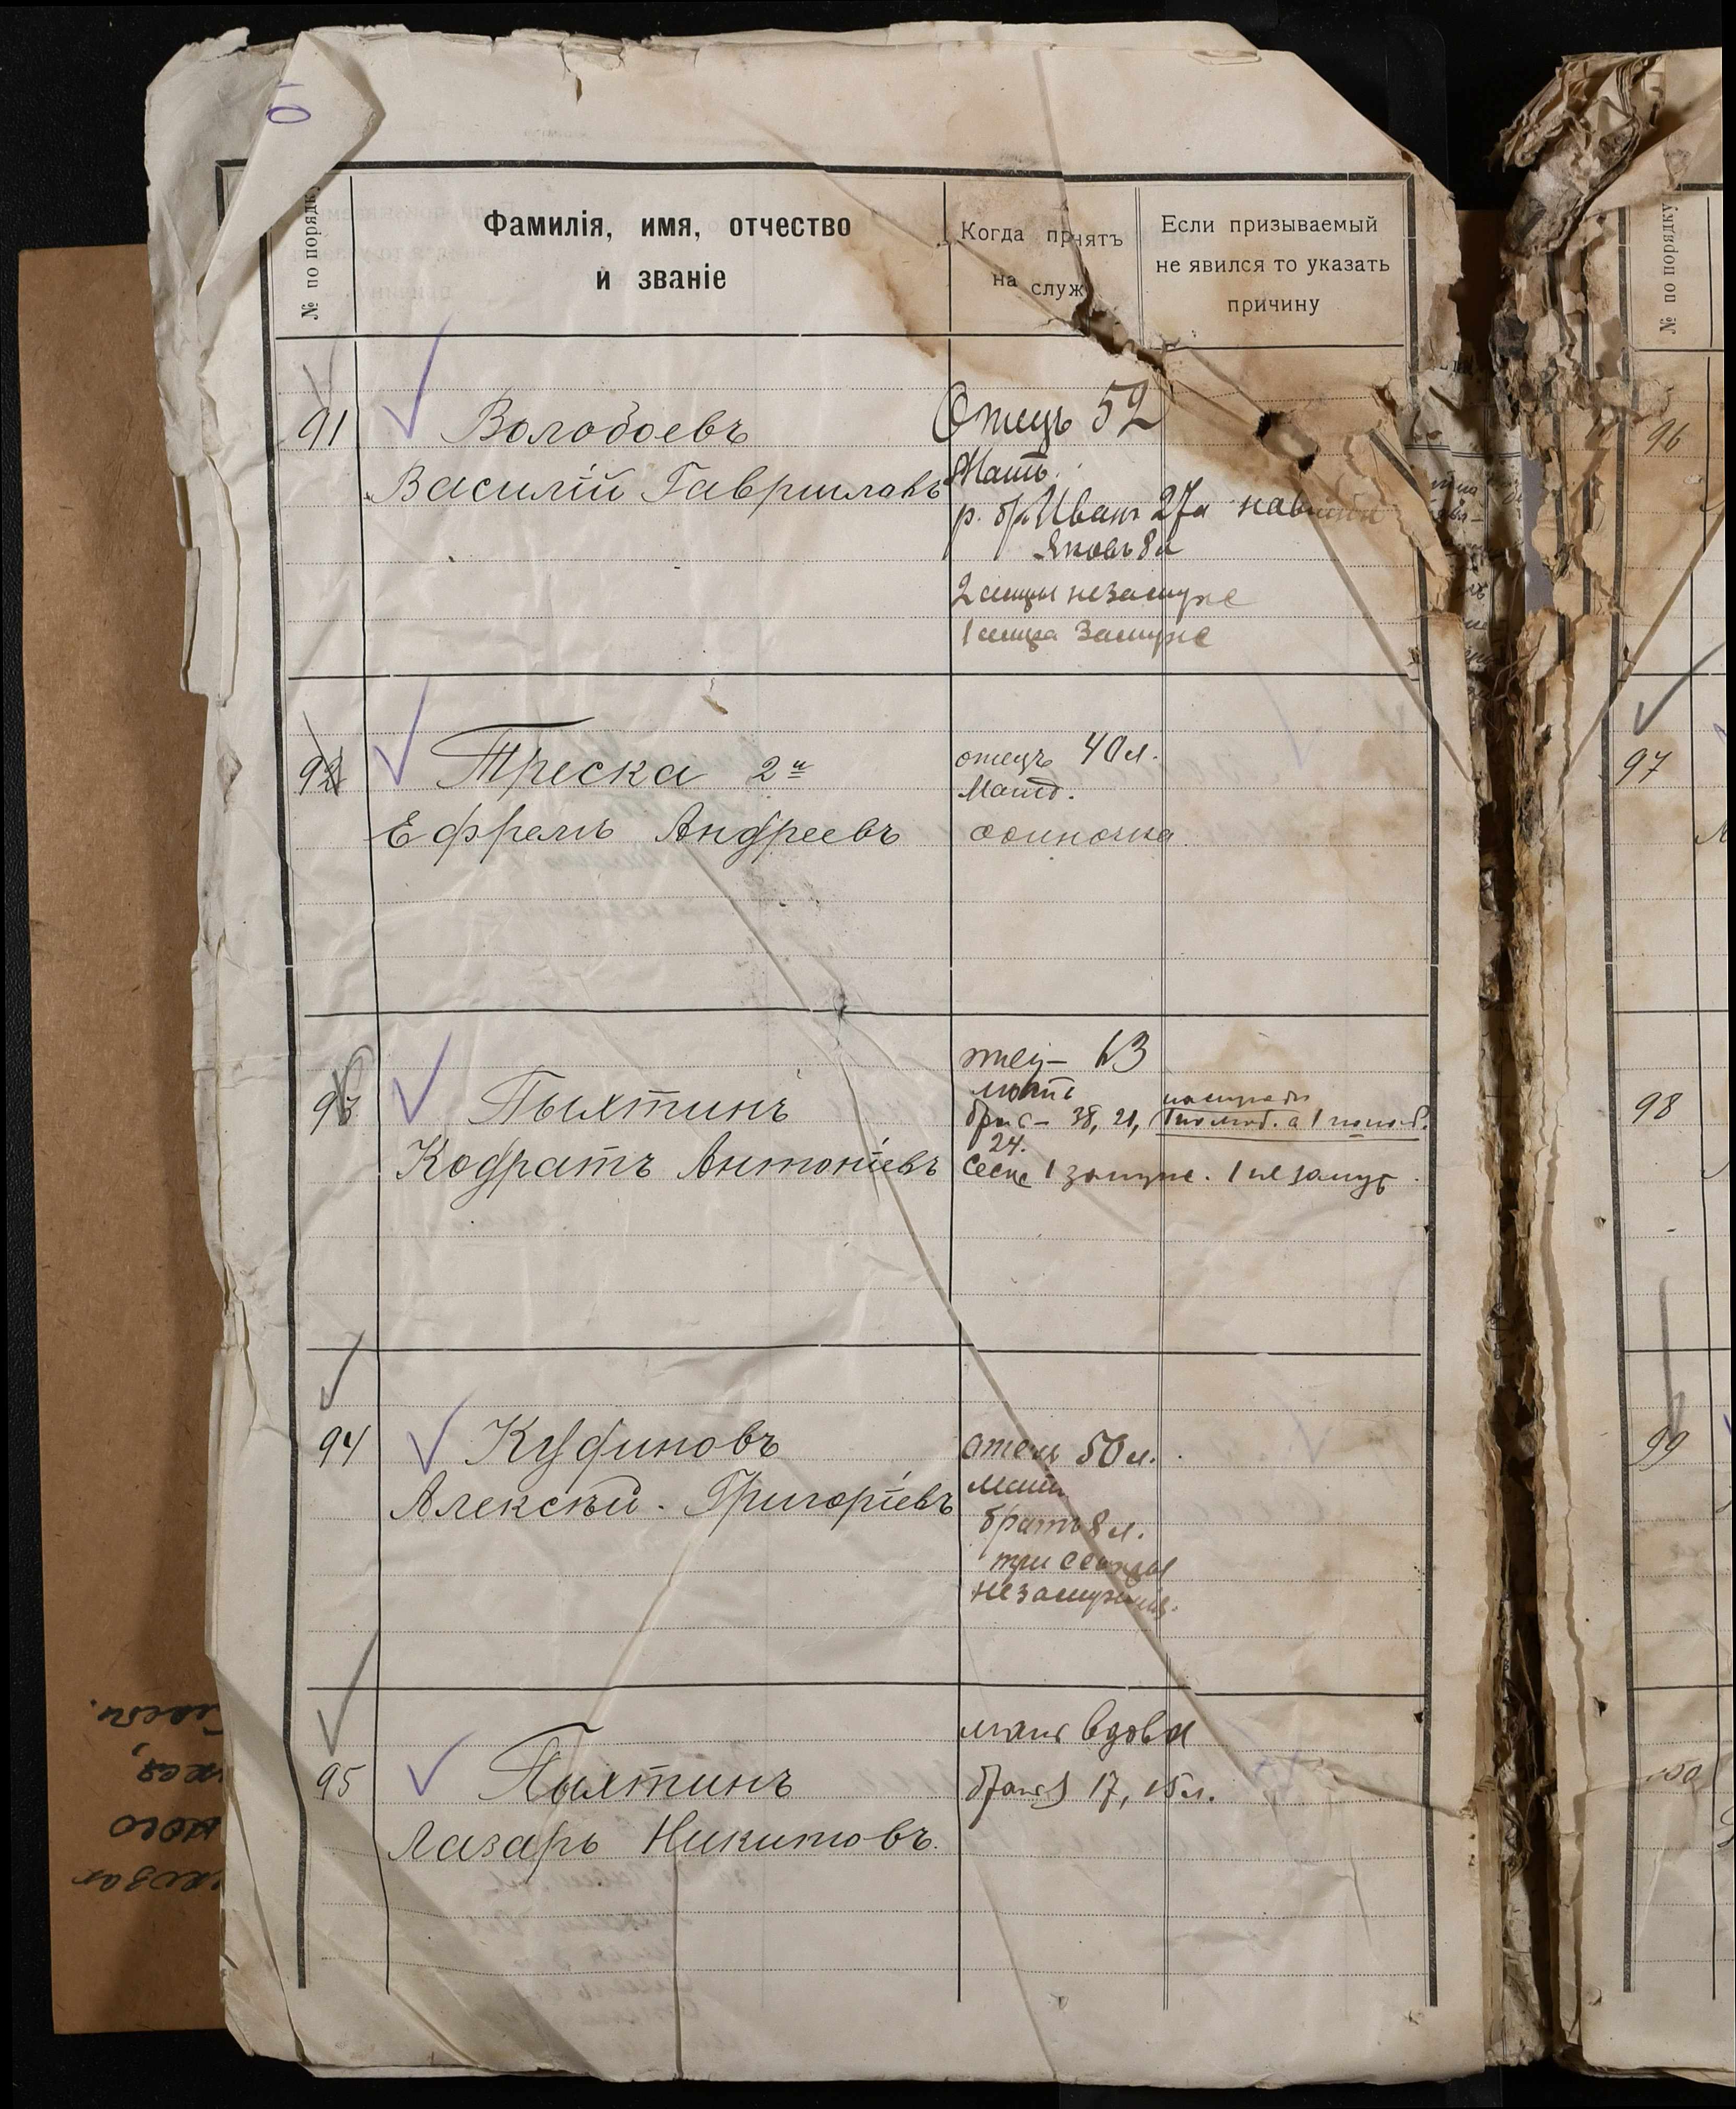 № по порядк.
Фамилія, имя, отчество
и званіе
Когда принятъ
на служ
Если призываемый
не явился то указать
причину
91
Волобоевъ
Василій Гавриловъ
Отецъ 52
Мать
р. бр. Иванъ 27л
Яковъ 8л
2 сестры незамуже
1 сестра замуже
92
Треска 2й
Ефремъ Андреевъ
отецъ 40л.
Мать.
одиночка
93
Пыхтинъ
Кодратъ Антоніевъ
отец — 63
мать
38, 21,
24.
1 замуже. 1 не замуж
94
Куфиновъ
Алексѣй. Григоріевъ
отецъ 50л.
мать
братъ 8л.
три сестры
незамужни.
95
Пыхтинъ
Лазарь Никитовъ.
мать вдова
братья 17, 15л.
№ по порядку
96
97
98
99